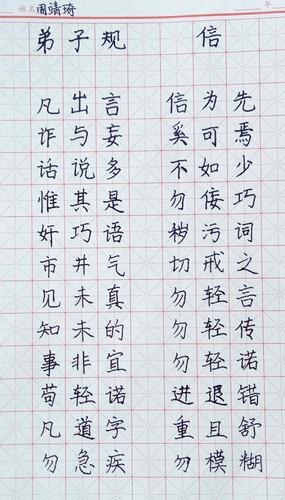 姓名 周靖琦 年
弟子规 信
凡出言 信为先
诈与妄 奚可焉
话说多 不如少
惟其是 勿佞巧
奸巧语 秽污词
市井气 切戒之
见未真 勿轻言
知未的 勿轻传
事非宜 勿轻诺
苟轻诺 进退错
凡道字 重且舒
勿急疾 勿模糊